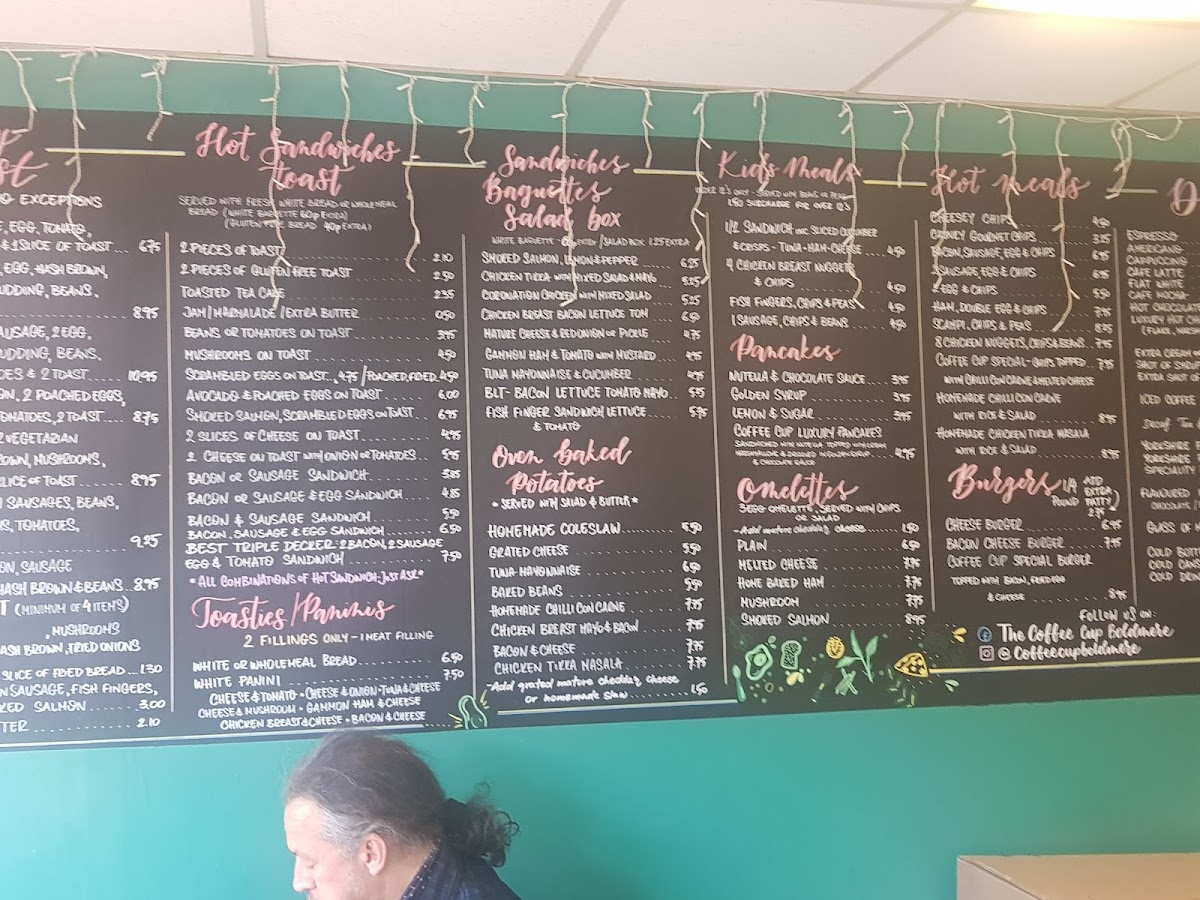 EXCEPTIONS
, EGG, TOMATO,
& 1 SLICE OF TOAST... 6.75
, EGG, HASH BROWN,
PUDDING, BEANS,
8.95
SAUSAGE, 2 EGG,
PUDDING, BEANS,
& 2 TOAST..... 10.95
, 2 POACHED EGGS,
TOMATOES, 2 TOAST.... 8.75
VEGETARIAN
BROWN, MUSHROOMS,
SLICE OF TOAST...... 8.95
SAUSAGES, BEANS,
TOMATOES,
9.25
SAUSAGE
HASH BROWN & BEANS.. 8.95
(MINIMUM OF 4 ITEMS)
, MUSHROOMS
HASH BROWN, FRIED ONIONS
SLICE OF FRIED BREAD... 1.30
SAUSAGE, FISH FINGERS,
SALMON....... 3.00
2.10
Hot Sandwiches
Toast
SERVED WITH FRESH WHITE BREAD OR WHOLEMEAL
BREAD (WHITE BAGUETTE 60p EXTRA)
(GLUTEN FREE BREAD 40p EXTRA)
2 PIECES OF TOAST 2.10
2 PIECES OF GLUTEN FREE TOAST 2.50
TOASTED TEA CAKE 2.35
JAM/MARMALADE/EXTRA BUTTER 0.50
BEANS OR TOMATOES ON TOAST 3.95
MUSHROOMS ON TOAST 4.50
SCRAMBLED EGGS ON TOAST... 4.75 / POACHED, FRIED. 4.50
AVOCADO & POACHED EGGS ON TOAST 6.00
SMOKED SALMON, SCRAMBLED EGGS ON TOAST 6.95
2 SLICES OF CHEESE ON TOAST 4.95
2 CHEESE ON TOAST WITH ONION OR TOMATOES 5.95
BACON OR SAUSAGE SANDWICH 3.85
BACON OR SAUSAGE & EGG SANDWICH 4.85
BACON & SAUSAGE SANDWICH 5.50
BACON, SAUSAGE & EGG SANDWICH 6.50
BEST TRIPLE DECKER: 2 BACON, 2 SAUSAGE
EGG & TOMATO SANDWICH 7.50
*ALL COMBINATIONS OF HOT SANDWICH - JUST ASK*
Toasties/Paninis
2 FILLINGS ONLY - 1 MEAT FILLING
WHITE OR WHOLEMEAL BREAD 6.50
WHITE PANINI 7.50
CHEESE & TOMATO • CHEESE & ONION • TUNA & CHEESE
CHEESE & MUSHROOM • GAMMON HAM & CHEESE
CHICKEN BREAST & CHEESE • BACON & CHEESE
Sandwiches
Baguettes
Salad box
WHITE BAGUETTE EXTRA/SALAD BOX 1.25 EXTRA
SMOKED SALMON, LEMON & PEPPER 6.25
CHICKEN TIKKA WITH MIXED SALAD & MAYO 5.25
CORONATION CHICKEN WITH MIXED SALAD 5.25
CHICKEN BREAST BACON LETTUCE TOM 6.50
MATURE CHEESE & RED ONION OR PICKLE 4.75
GAMMON HAM & TOMATO WITH MUSTARD 4.95
TUNA MAYONNAISE & CUCUMBER 4.95
BLT- BACON LETTUCE TOMATO MAYO 5.75
FISH FINGER SANDWICH LETTUCE 5.75
& TOMATO
Oven baked
Potatoes
*SERVED WITH SALAD & BUTTER*
HOMEMADE COLESLAW 5.50
GRATED CHEESE 5.50
TUNA MAYONNAISE 6.50
BAKED BEANS 5.50
HOMEMADE CHILLI CON CARNE 7.75
CHICKEN BREAST MAYO & BACON 7.75
BACON & CHEESE 7.75
CHICKEN TIKKA MASALA 7.75
-Add grated mature cheddar cheese
or homemade slaw 1.50
Kid's Meals
UNDER 12'S ONLY - SERVED WITH BEANS OR PEAS
1.50 SURCHARGE FOR OVER 12'S
1/2 SANDWICH INC. SLICED CUCUMBER
& CRISPS - TUNA-HAM-CHEESE 4.50
4 CHICKEN BREAST NUGGETS
& CHIPS 4.50
FISH FINGERS, CHIPS & PEAS 4.50
1 SAUSAGE, CHIPS & BEANS 4.50
Pancakes
NUTELLA & CHOCOLATE SAUCE 3.95
GOLDEN SYRUP 3.95
LEMON & SUGAR 3.95
COFFEE CUP LUXURY PANCAKES
SANDWICHED WITH NUTELLA TOPPED WITH CREAM
MARSHMALLOWS & DRIZZLED IN GOLDEN SYRUP
& CHOCOLATE SAUCE 4.95
Omelettes
3 EGG OMELETTE, SERVED WITH CHIPS
OR SALAD
-Add mature cheddar cheese 1.50
PLAIN 6.50
MELTED CHEESE 7.75
HOME BAKED HAM 7.75
MUSHROOM 7.75
SMOKED SALMON 8.95
Hot meals
CHEESEY CHIPS 4.50
CHUNKY GOURMET CHIPS 3.25
BACON, SAUSAGE, EGG & CHIPS 6.95
2 SAUSAGE, EGG & CHIPS 6.95
EGG & CHIPS 5.50
HAM, DOUBLE EGG & CHIPS 7.95
SCAMPI, CHIPS & PEAS 8.25
8 CHICKEN NUGGETS, CHIPS & BEANS 7.95
COFFEE CUP SPECIAL - CHIPS TOPPED 7.95
WITH CHILLI CON CARNE & MELTED CHEESE
HOMEMADE CHILLI CON CARNE
WITH RICE & SALAD 8.95
HOMEMADE CHICKEN TIKKA MASALA
WITH RICE & SALAD 8.95
Burgers 1/4 POUND
ADD EXTRA PATTY 2.75
CHEESE BURGER 6.95
BACON CHEESE BURGER 7.95
COFFEE CUP SPECIAL BURGER
TOPPED WITH BACON, FRIED EGG
& CHEESE 8.95
FOLLOW US ON:
The Coffee Cup Boldmere
@Coffeecupboldmere
D
ESPRESSO
AMERICANO
CAPPUCCINO
CAFE LATTE
FLAT WHITE
CAFE MOCHA
HOT CHOCOLATE
LUXURY HOT
EXTRA CREAM
SHOT OF SYRUP
EXTRA SHOT OF
ICED COFFEE
Decaf Tea
YORKSHIRE
YORKSHIRE
SPECIALITY
FLAVOURED
CHOCOLATE
GLASS OF
COLD
COLD CANS
COLD